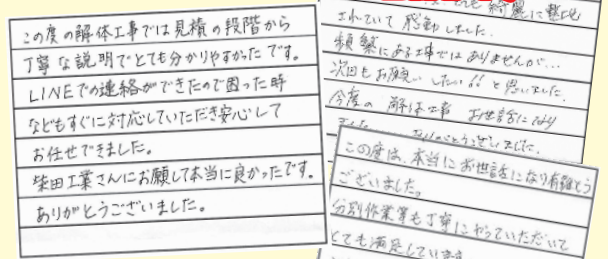 この度の解体工事では見積の段階から
丁寧な説明でとても分かりやすかったです。
LINEでの連絡ができたので困った時
などもすぐに対応していただき安心して
お任せできました。
柴田工業さんにお願して本当に良かったです。
ありがとうございました。
も綺麗に整地
されていて感動しました。
頻繁にある工事ではありませんが…
次回もお願いしたい!!と思いました。
今度の解体工事お世話になり
ありがとうございました。
この度は、本当にお世話になり有難とう
ございました。
分別作業等も丁寧にやっていただいて
とても満足しています